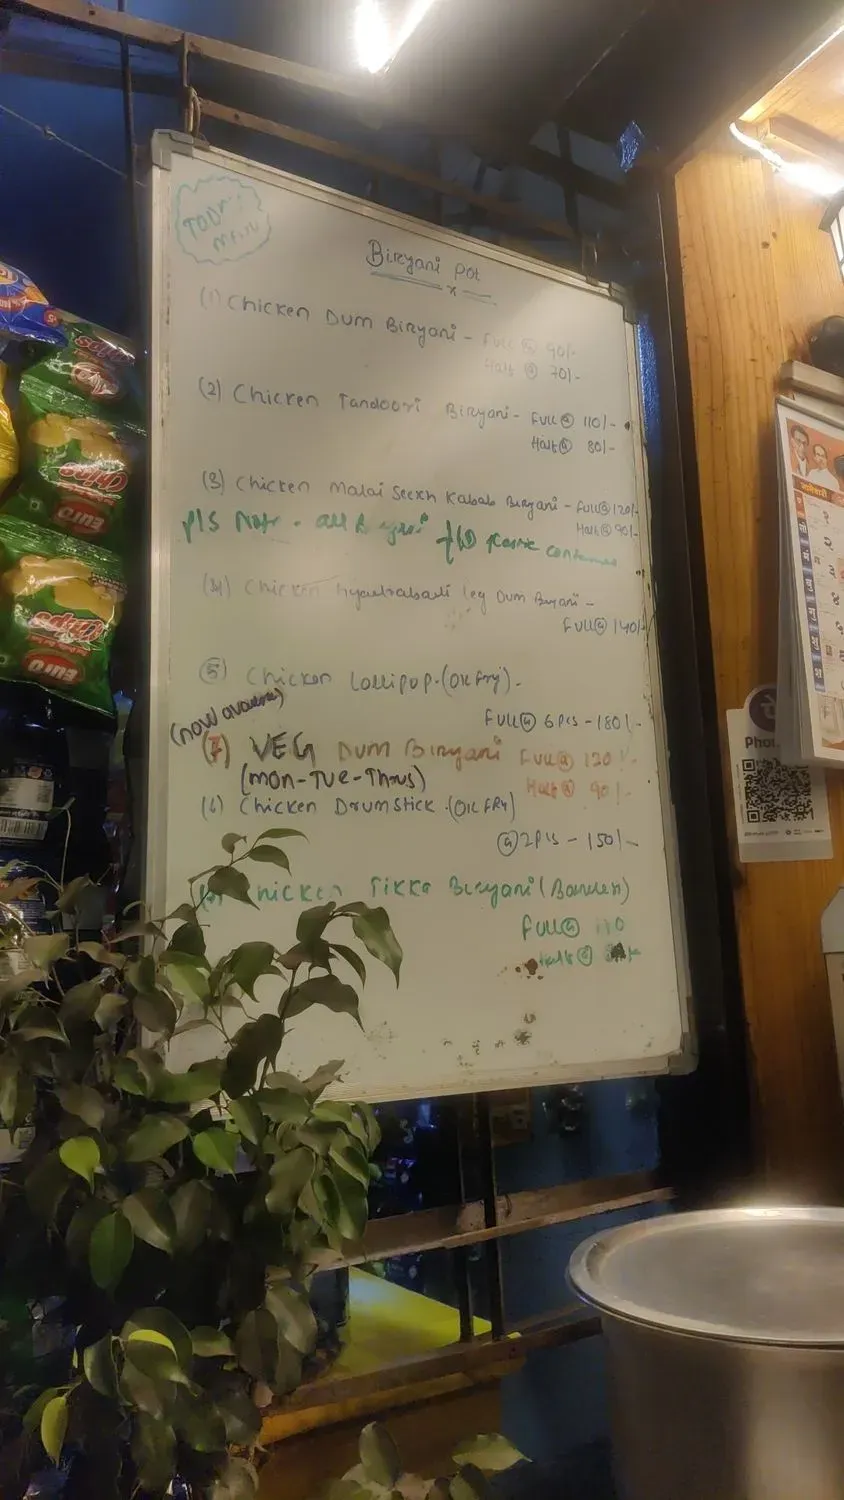 TODAY'S
MENU
Biryani Pot
(1) Chicken Dum Biryani - Full @ 90/-
Half @ 70/-
(2) Chicken Tandoori Biryani - Full @ 110/-
Half @ 80/-
(3) Chicken Malai Seekh Kabab Biryani - Full @ 120/-
Half @ 90/-
Pls Note - all Biryani
(4) Chicken Hyderabadi leg Dum Biryani -
Full @ 140/-
(5) Chicken Lollipop. (Oil Fry) -
Full @ 6 Pcs - 180/-
(now available)
(7) VEG Dum Biryani Full @ 120/-
(mon-Tue-Thus) Half @ 90/-
(6) Chicken Drumstick. (Oil FRY)
@ 2 Pcs - 150/-
Chicken Tikka Biryani
Full @
Half @
Chips
EURO
Chips
EURO
जानेवारी